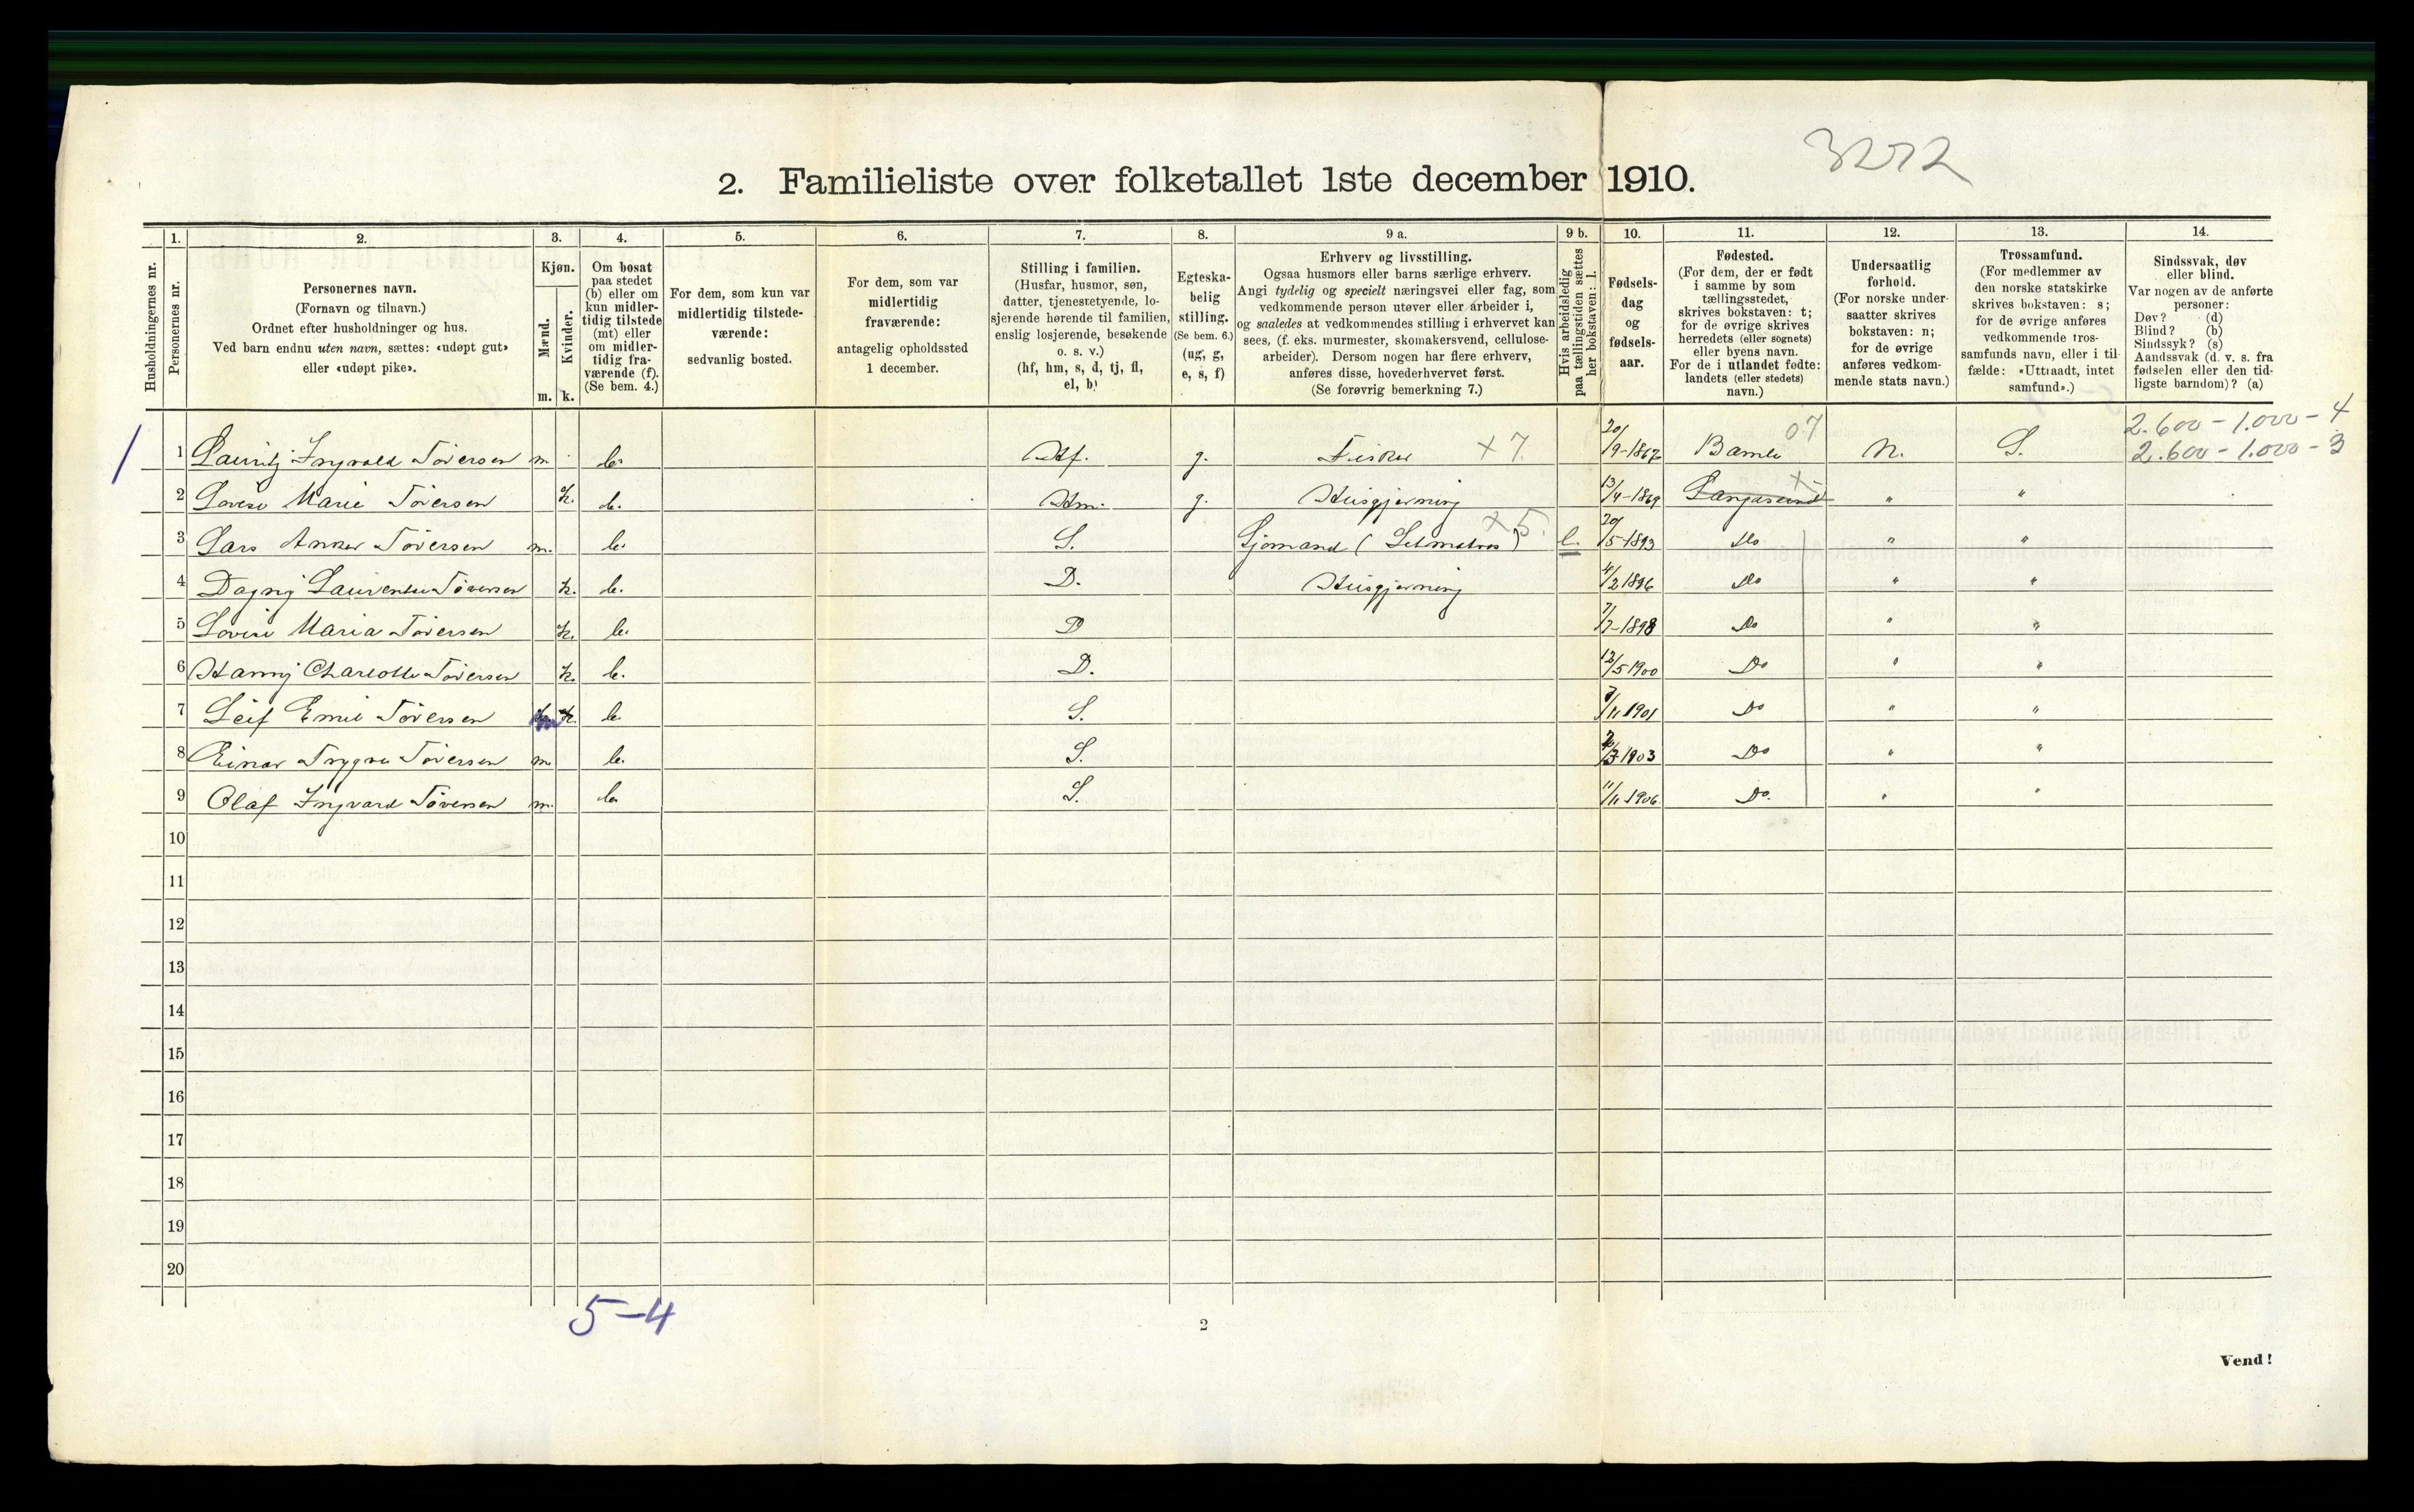 3272
2. Familieliste over folketallet 1ste december 1910.
Husholdningernes nr.
1. Personernes nr.
2. Personernes navn.
(Fornavn og tilnavn.)
Ordnet efter husholdninger og hus.
Ved barn endnu uten navn, sættes: «udøpt gut»
eller «udøpt pike».
3. Kjøn.
Mænd. m.
Kvinder. k.
4. Om bosat
paa stedet
(b) eller om
kun midler-
tidig tilstede
(mt) eller
om midler-
tidig fra-
værende (f).
(Se bem. 4.)
5. For dem, som kun var
midlertidig tilstede-
værende:
sedvanlig bosted.
6. For dem, som var
midlertidig
fraværende:
antagelig opholdssted
1 december.
7. Stilling i familien.
(Husfar, husmor, søn,
datter, tjenestetyende, lo-
sjerende hørende til familien,
enslig losjerende, besøkende
o. s. v.)
(hf, hm, s, d, tj, fl,
el, b)
8. Egteska-
belig
stilling.
(Se bem. 6.)
(ug, g,
e, s, f)
9 a. Erhverv og livsstilling.
Ogsaa husmors eller barns særlige erhverv.
Angi tydelig og specielt næringsvei eller fag, som
vedkommende person utøver eller arbeider i,
og saaledes at vedkommendes stilling i erhvervet kan
sees, (f. eks. murmester, skomakersvend, cellulose-
arbeider). Dersom nogen har flere erhverv,
anføres disse, hovederhvervet først.
(Se forøvrig bemerkning 7.)
9 b. Hvis arbeidsledig
paa tællingstiden sættes
her bokstaven: l.
10. Fødsels-
dag
og
fødsels-
aar.
11. Fødested.
(For dem, der er født
i samme by som
tællingsstedet,
skrives bokstaven: t;
for de øvrige skrives
herredets (eller sognets)
eller byens navn.
For de i utlandet fødte:
landets (eller stedets)
navn.)
12. Undersaatlig
forhold.
(For norske under-
saatter skrives
bokstaven: n;
for de øvrige
anføres vedkom-
mende stats navn.)
13. Trossamfund.
(For medlemmer av
den norske statskirke
skrives bokstaven: s;
for de øvrige anføres
vedkommende tros-
samfunds navn, eller i til-
fælde: «Uttraadt, intet
samfund».)
14. Sindssvak, døv
eller blind.
Var nogen av de anførte
personer:
Døv? (d)
Blind? (b)
Sindssyk? (s)
Aandssvak (d. v. s. fra
fødselen eller den tid-
ligste barndom)? (a)
2.600 - 1.000 - 4
2.600 - 1.000 - 3
1 Lauritz Ingvald Töversen m. b. Hf. g. Fisker +7. 20/9-1867 Bamle 07 N. S.
2 Lovise Marie Töversen k. b. Hm. g. Husgjerning 13/4-1869 Langesund × " "
3 Lars Anker Töversen m. b. S. Sjömand (Letmatros) ×5. l. 20/5-1893 Do " "
4 Dagny Laurentse Töversen k. b. D. Husgjerning 4/2 1896 Do " "
5 Lovise Maria Töversen k. b. D 7/7-1898 Do " "
6 Hanny Charlotte Töversen k. b. D. 12/5 1900 Do " "
7 Leif Emil Töversen m k. b. S. 7/11 1901 Do " "
8 Einar Trygve Töversen m. b. S. /3 1903 Do " "
9 Olaf Ingvard Töversen m. b. S. 11/11 1906 Do. " "
10
11
12
13
14
15
16
17
18
19
20
5-4
2
Vend!